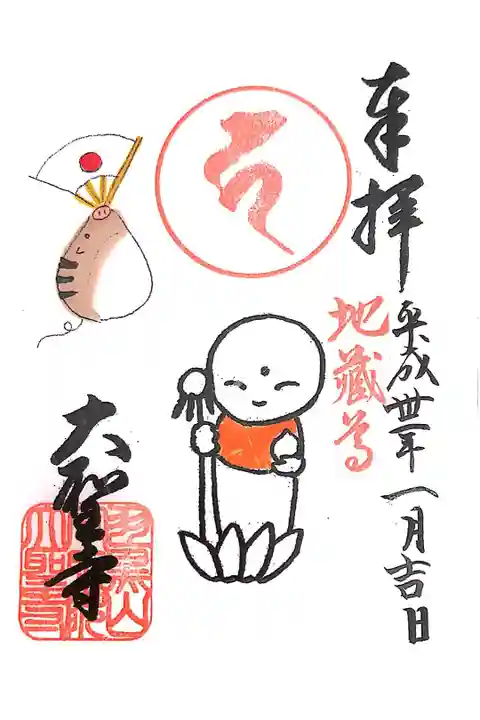 奉拝
平成卅一年一月吉日
地蔵尊
大聖寺